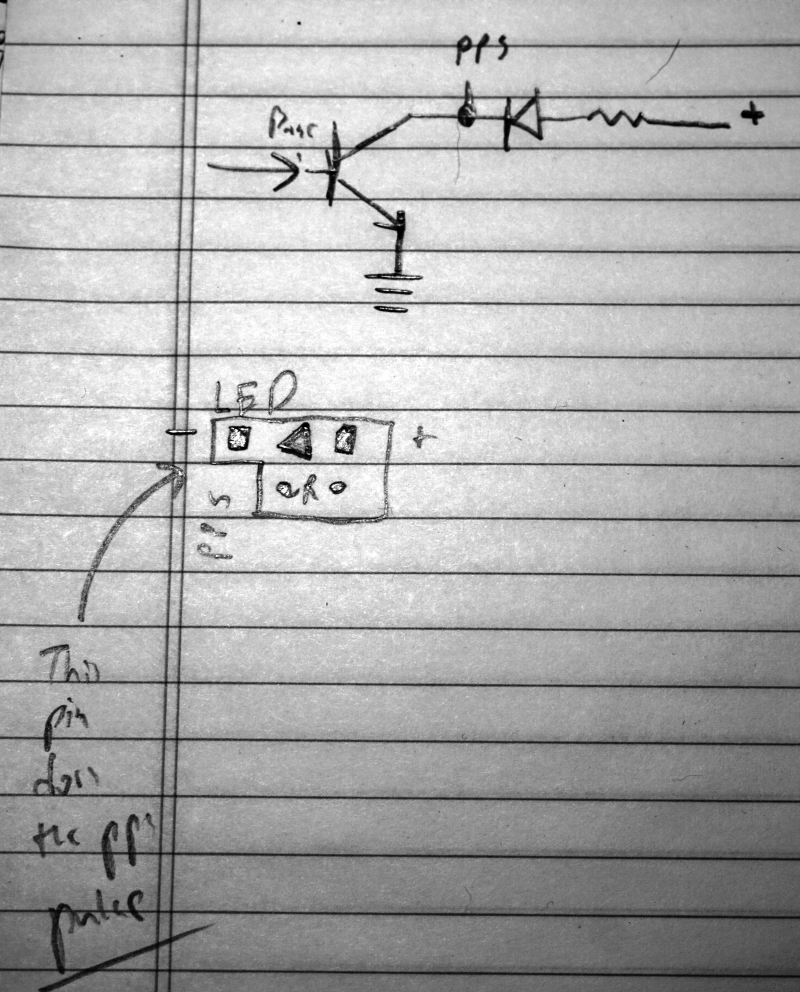 PPS
Base
+
LED
- +
R
PPS
This
pin
does
the pps
pulse